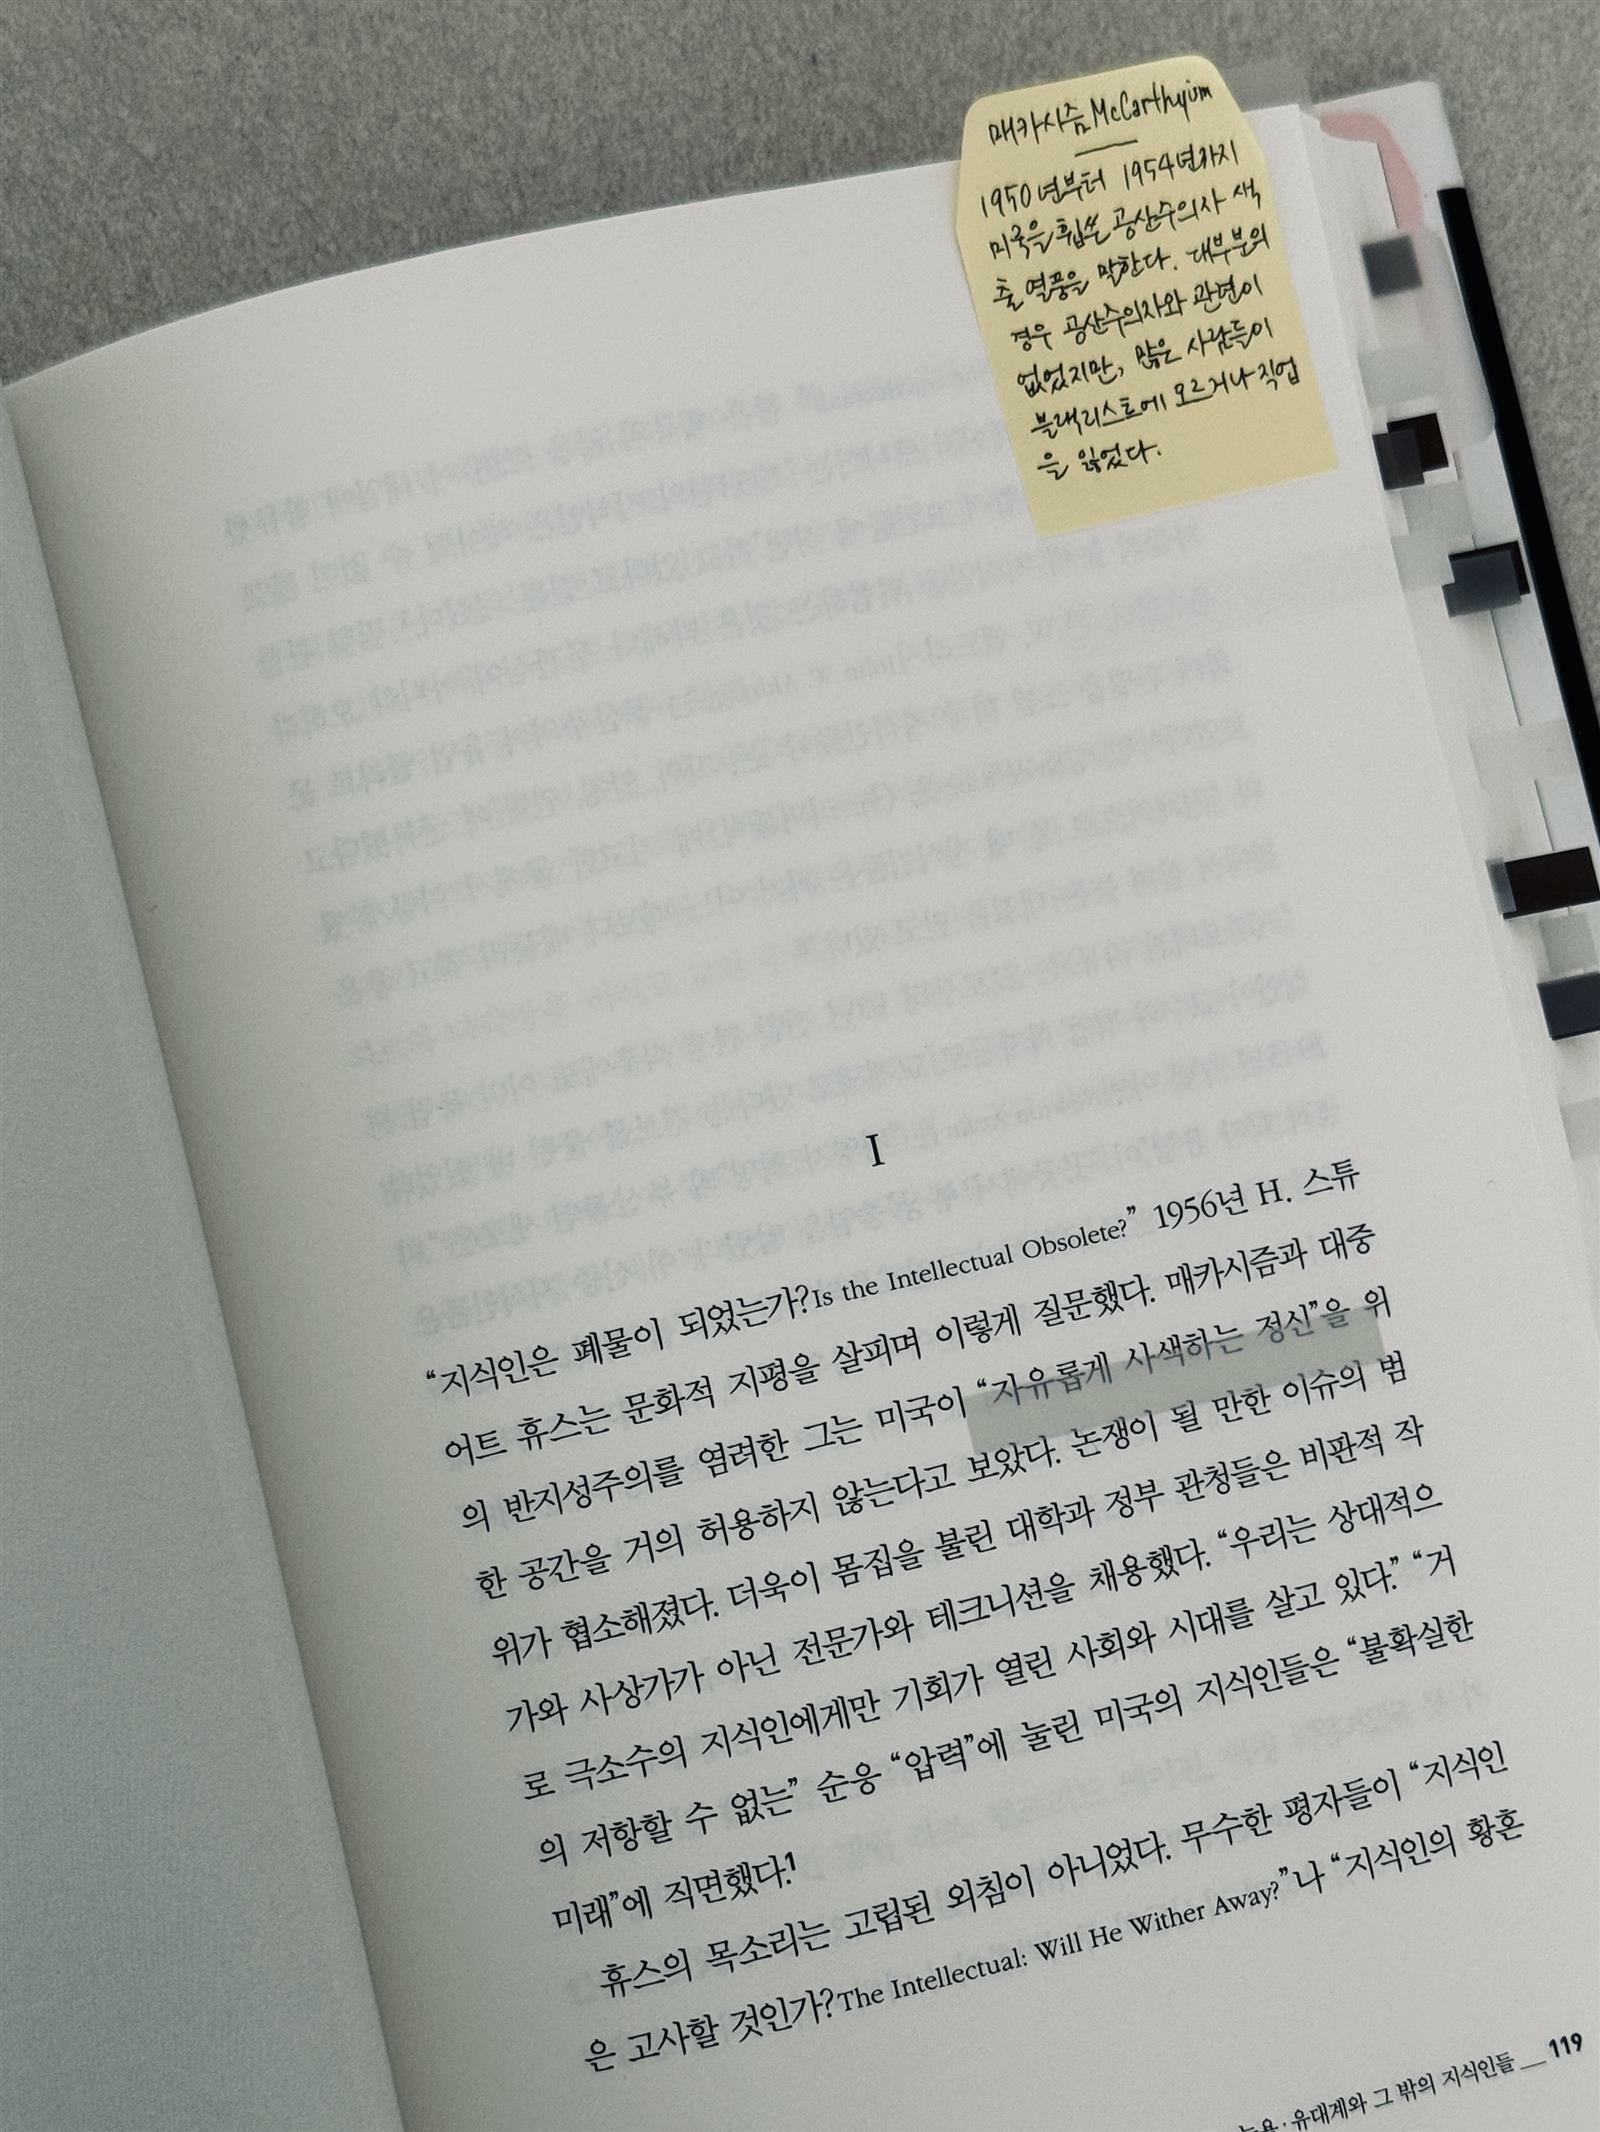 매카시즘 McCarthyism
1950년부터 1954년까지
미국을 휩쓴 공산주의자 색
출 열풍을 말한다. 대부분의
경우 공산주의자와 관련이
없었지만, 많은 사람들이
블랙리스트에 오르거나 직업
을 잃었다.
I
“지식인은 폐물이 되었는가?Is the Intellectual Obsolete?” 1956년 H. 스튜
어트 휴스는 문화적 지평을 살피며 이렇게 질문했다. 매카시즘과 대중
의 반지성주의를 염려한 그는 미국이 “자유롭게 사색하는 정신”을 위
한 공간을 거의 허용하지 않는다고 보았다. 논쟁이 될 만한 이슈의 범
위가 협소해졌다. 더욱이 몸집을 불린 대학과 정부 관청들은 비판적 작
가와 사상가가 아닌 전문가와 테크니션을 채용했다. “우리는 상대적으
로 극소수의 지식인에게만 기회가 열린 사회와 시대를 살고 있다.” “거
의 저항할 수 없는” 순응 “압력”에 눌린 미국의 지식인들은 “불확실한
미래”에 직면했다.1
휴스의 목소리는 고립된 외침이 아니었다. 무수한 평자들이 “지식인
은 고사할 것인가?The Intellectual: Will He Wither Away?”나 “지식인의 황혼
· 유대계와 그 밖의 지식인들 __119